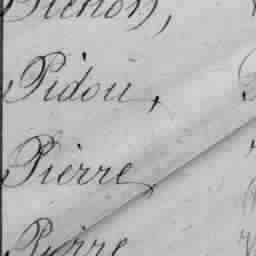 Pidou,
Pierre
Pierre